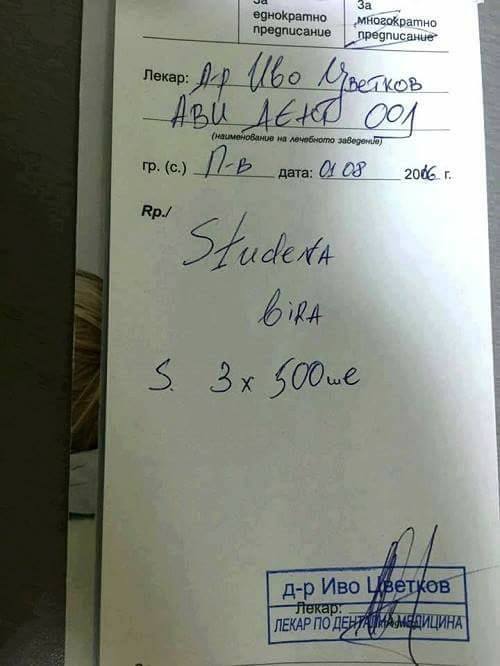 За
еднократно
предписание
За
многократно
предписание
Лекар: д-р Иво Цветков
АВИ ДЕНТ 001
(наименование на лечебното заведение)
гр. (с.) П-в дата: 01 08 2016 г.
Rp./
Studena
bira
S. 3 x 500 мл
д-р Иво Цветков
Лекар:
ЛЕКАР ПО ДЕНТАЛНА МЕДИЦИНА